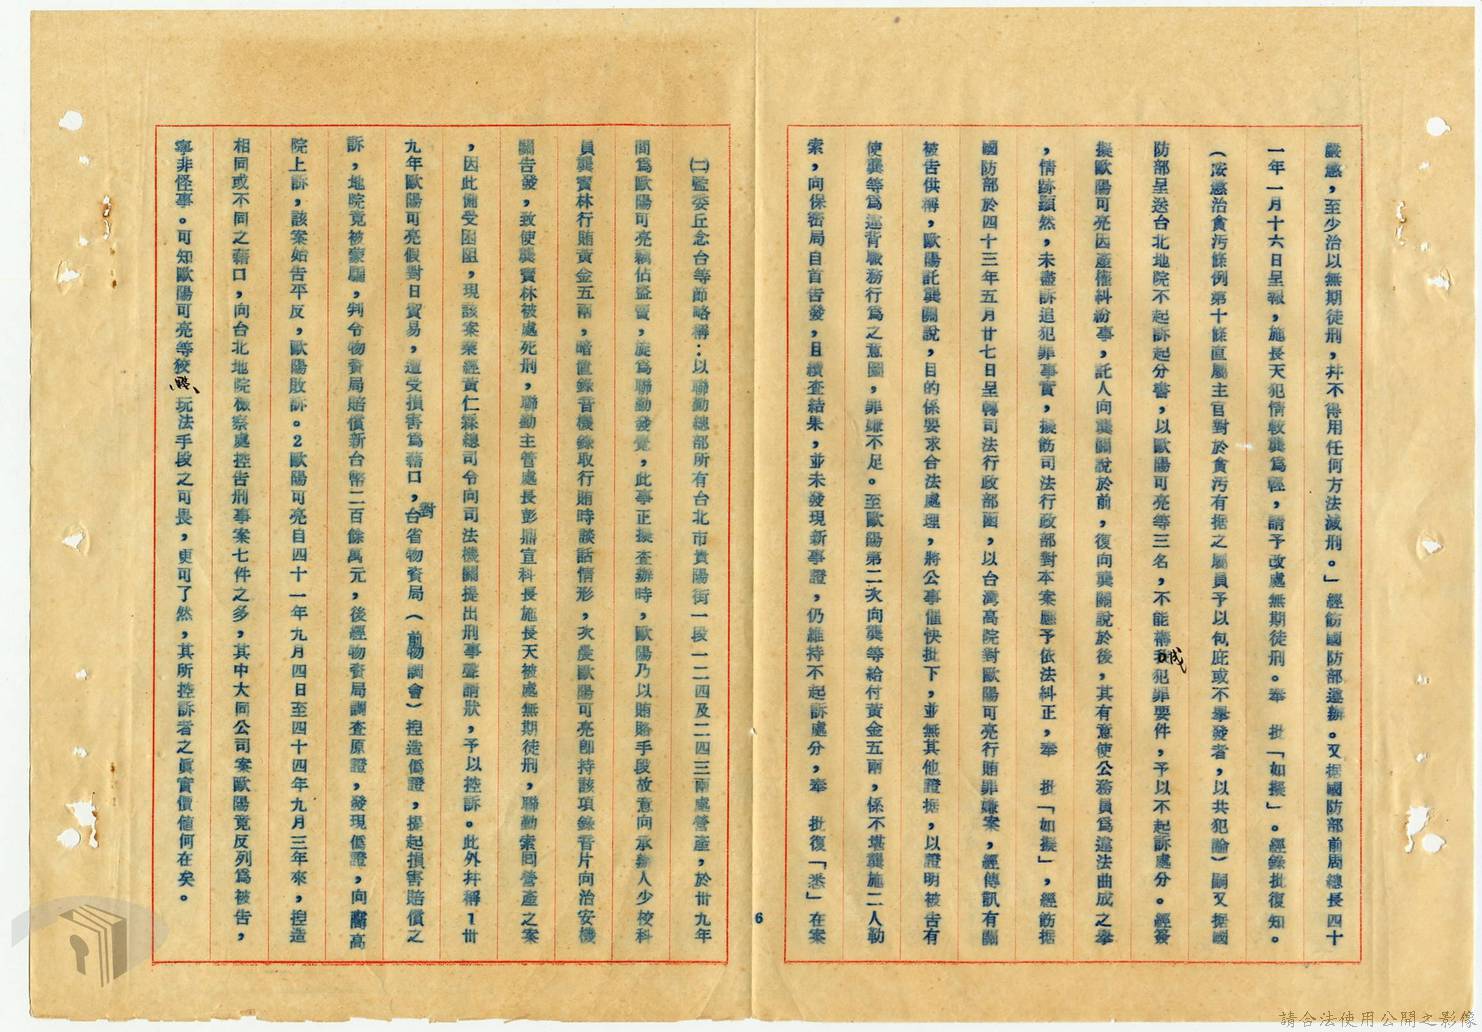 嚴懲，至少治以無期徒刑，幷不得用任何方法減刑。」經飭國防部遵辦。又據國防部前周總長四十
一年一月十六日呈報，施長天犯情較龔爲輕，請予改處無期徒刑。奉　批「如擬」。經錄批復知。
（按懲治貪污條例第十條直屬主官對於貪污有據之屬員予以包庇或不舉發者，以共犯論）嗣又據國
防部呈送台北地院不起訴起分書，以歐陽可亮等三名，不能構成犯罪要件，予以不起訴處分。經簽
擬歐陽可亮因產權糾紛事，託人向龔關說於前，復向龔關說於後，其有意使公務員爲違法曲成之舉
，情跡顯然，未盡訴追犯罪事實，擬飭司法行政部對本案應予依法糾正，奉　批「如擬」，經飭據
國防部於四十三年五月廿七日呈轉司法行政部函，以台灣高院對歐陽可亮行賄罪嫌案，經傳訊有關
被告供稱，歐陽託龔關說，目的係要求合法處理，將公事催快批下，並無其他證據，以證明被告有
使龔等爲違背職務行爲之意圖，罪嫌不足。至歐陽第二次向龔等給付黃金五兩，係不堪龔施二人勒
索，向保密局自首告發，且續查結果，並未發現新事證，仍維持不起訴處分，奉　批復「悉」在案
6
㈡監委丘念台等節略稱：以聯勤總部所有台北市貴陽街一段一二四及二四三兩處營產，於卅九年
間爲歐陽可亮竊佔盜賣，旋爲聯勤發覺，此事正擬查辦時，歐陽乃以賄賂手段故意向承辦人少校科
員龔實林行賄黃金五兩，暗置錄音機錄取行賄時談話情形，次晨歐陽可亮卽持該項錄音片向治安機
關告發，致使龔實林被處死刑，聯勤主管處長彭鼎宣科長施長天被處無期徒刑，聯勤索回營產之案
，因此備受困阻，現該案業經黃仁霖總司令向司法機關提出刑事聲請狀，予以控訴。此外幷稱1卅
九年歐陽可亮假對日貿易，遭受損害爲藉口，對台省物資局（前物調會）捏造僞證，提起損害賠償之
訴，地院竟被蒙騙，判令物資局賠償新台幣二百餘萬元，後經物資局調查原證，發現僞證，向高
院上訴，該案始告平反，歐陽敗訴。2歐陽可亮自四十一年九月四日至四十四年九月三年來，捏造
相同或不同之藉口，向台北地院檢察處控告刑事案七件之多，其中大同公司案歐陽竟反列爲被告，
寧非怪事。可知歐陽可亮等狡黠、玩法手段之可畏，更可了然，其所控訴者之眞實價値何在矣。
請合法使用公開之影像